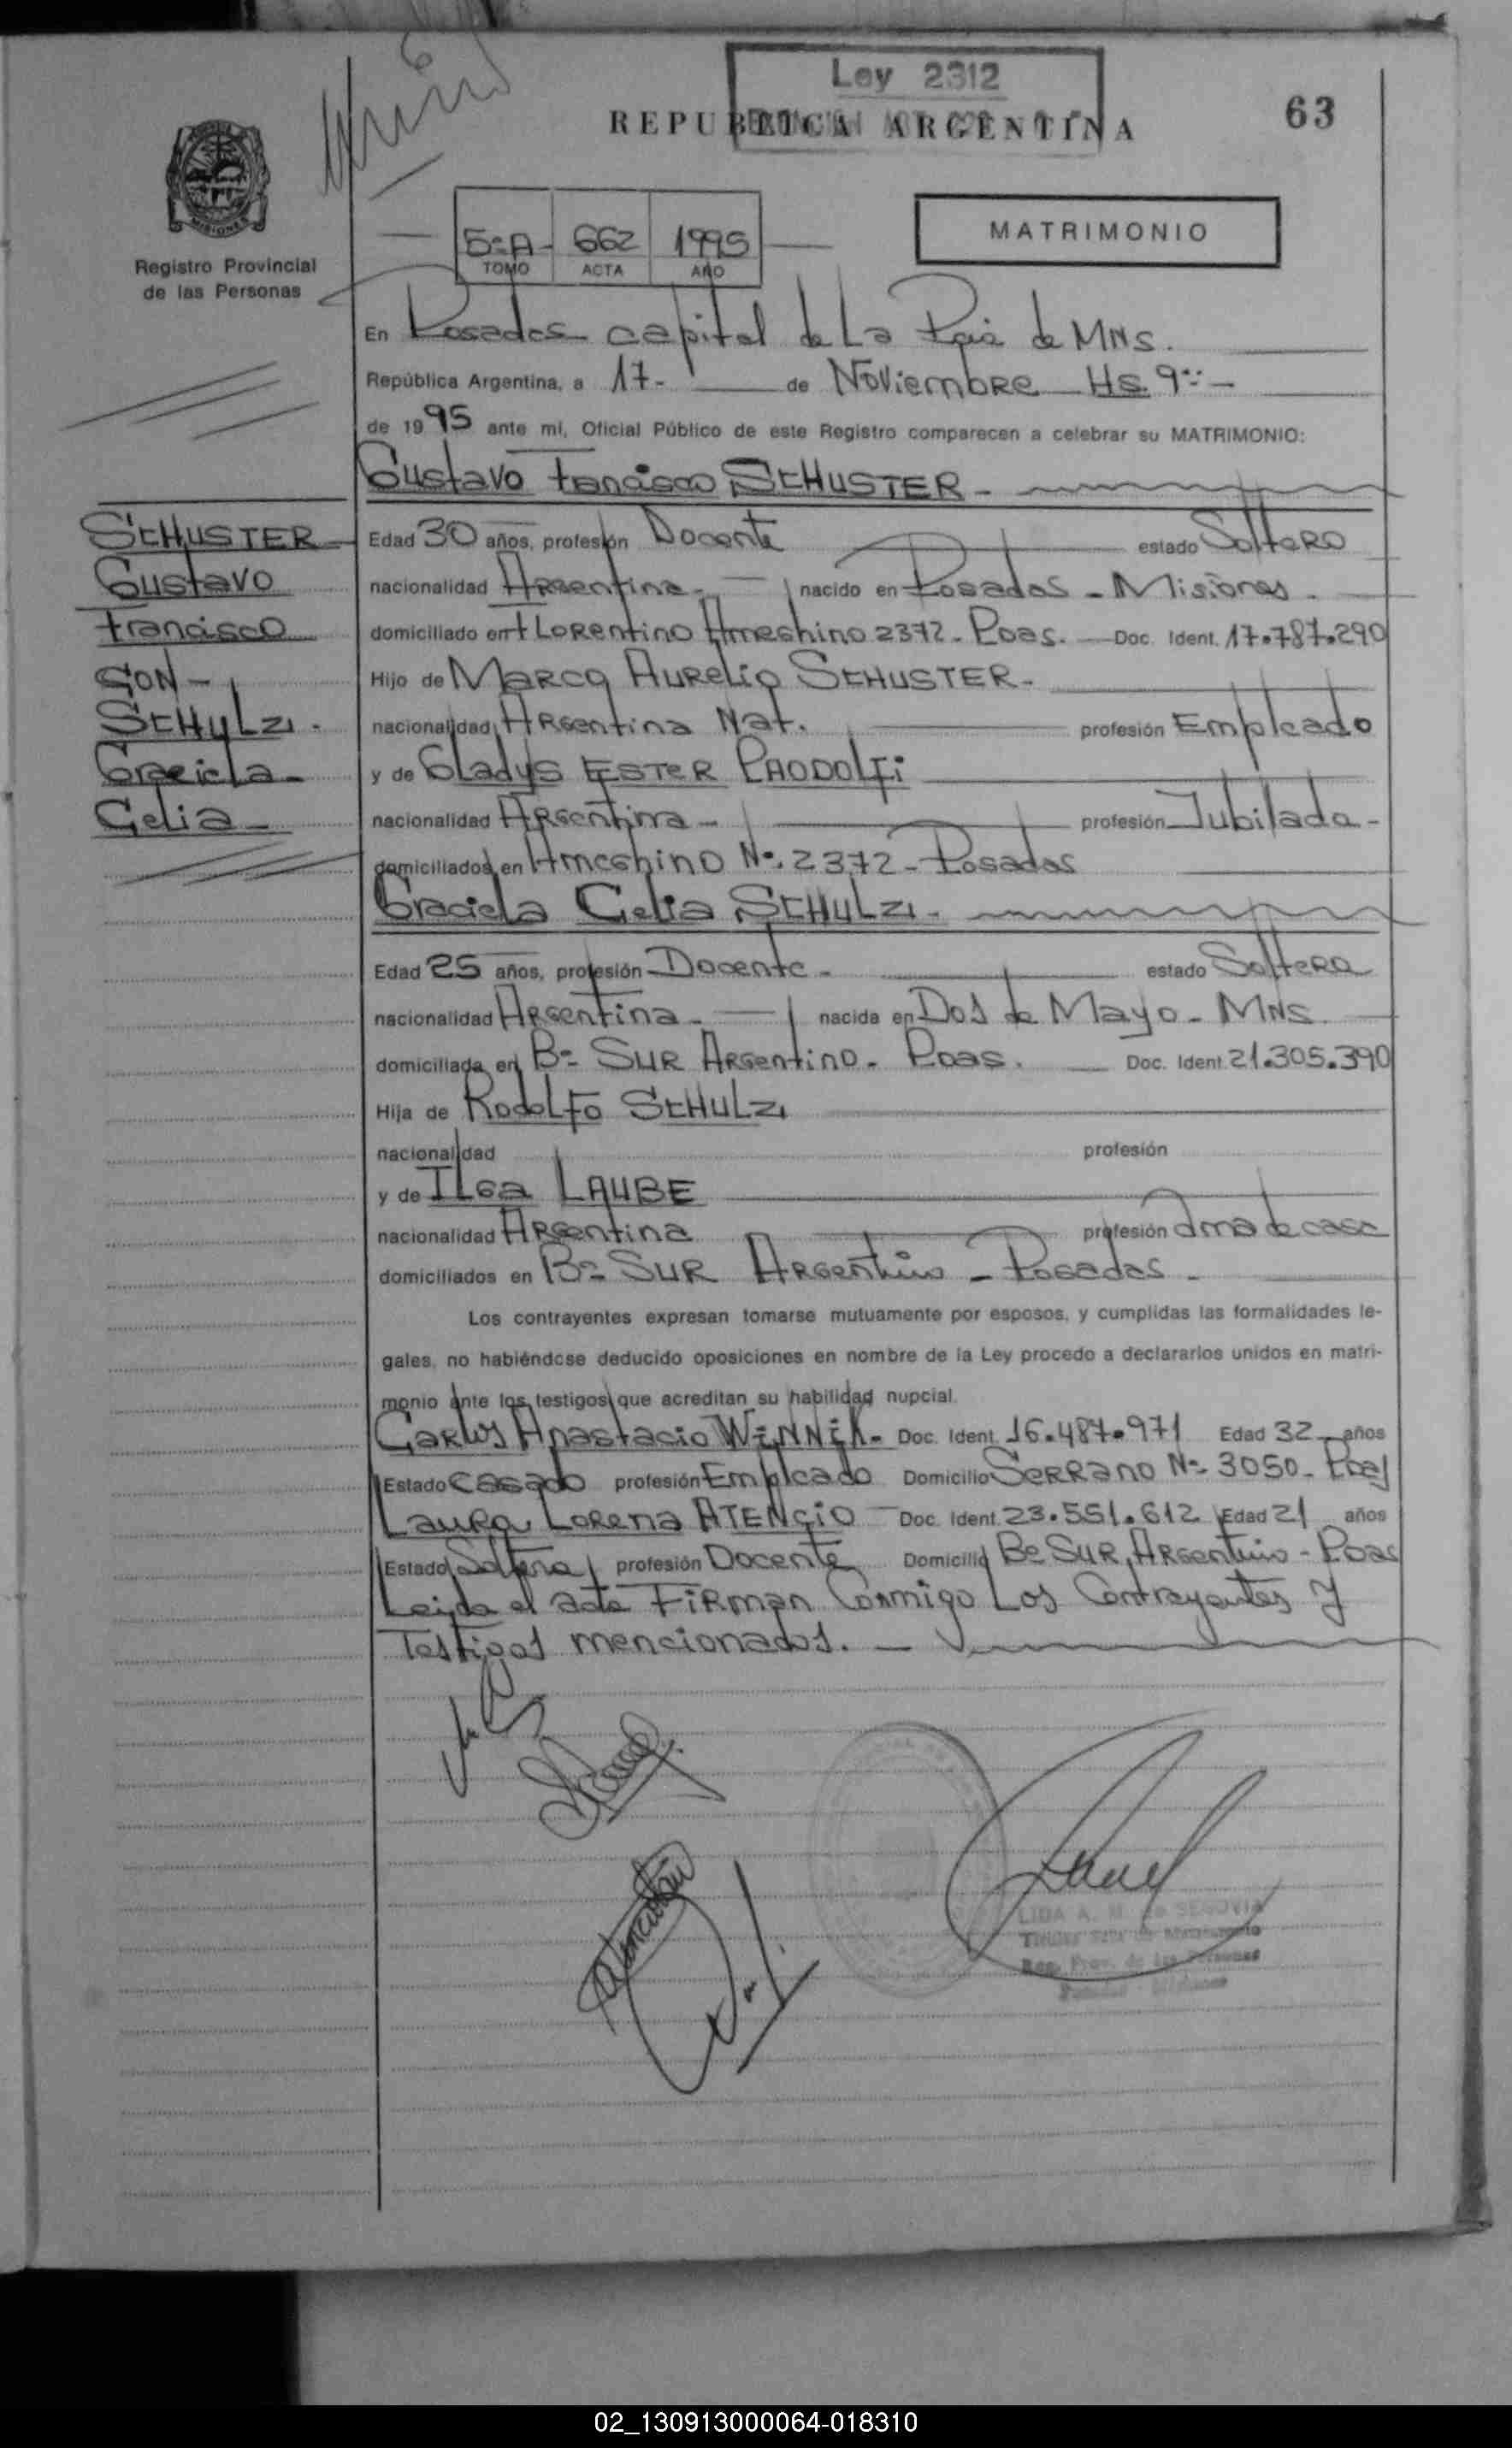 Ley 2312
REPUBLICA ARGENTINA
63
MISIONES
Registro Provincial
de las Personas
5ºA- 662 1995
TOMO ACTA AÑO
MATRIMONIO
En Posadas capital de La Pcia de MNS.
República Argentina, a 17- de Noviembre Hs 9:
de 1995 ante mí, Oficial Público de este Registro comparecen a celebrar su MATRIMONIO:
Gustavo Francisco SCHUSTER -
SCHUSTER
Gustavo
Francisco
CON -
SCHULZ.
Graciela -
Celia -
Edad 30 años, profesión Docente estado Soltero
nacionalidad Argentina - nacido en Posadas - Misiones.
domiciliado en Florentino Ameghino 2372 - Poas. Doc. Ident. 17.787.290
Hijo de Marco Aurelio SCHUSTER -
nacionalidad Argentina Nat. profesión Empleado
y de Gladys ESTER PAODOLFi
nacionalidad Argentina - profesión Jubilada -
domiciliados en Ameghino Nº. 2372 - Posadas
Graciela Celia SCHULZ -
Edad 25 años, profesión Docente - estado Soltera
nacionalidad Argentina - nacida en Dos de Mayo - MNS.
domiciliada en Bº SUR Argentino. Poas. Doc. Ident. 21.305.390
Hija de Rodolfo SCHULZ
nacionalidad profesión
y de ILga LAUBE
nacionalidad Argentina profesión Ama de casa
domiciliados en Bº SUR Argentino - Posadas -
Los contrayentes expresan tomarse mutuamente por esposos, y cumplidas las formalidades le-
gales, no habiéndose deducido oposiciones en nombre de la Ley procedo a declararlos unidos en matri-
monio ante los testigos que acreditan su habilidad nupcial.
Carlos Anastacio WiNNiK - Doc. Ident. 16.487.971 Edad 32 años
Estado Casado profesión Empleado Domicilio Serrano Nº 3050 - Poas
Laura Lorena ATENCiO - Doc. Ident. 23.551.612 Edad 21 años
Estado Soltera profesión Docente Domicilio Bº SUR Argentino - Poas
Leida el acta Firman Conmigo Los Contrayentes y
Testigos mencionados. -
LIDA A. M. de SEGOVIA
Reg. Prov. de las Personas
Posadas - Misiones
02_130913000064-018310